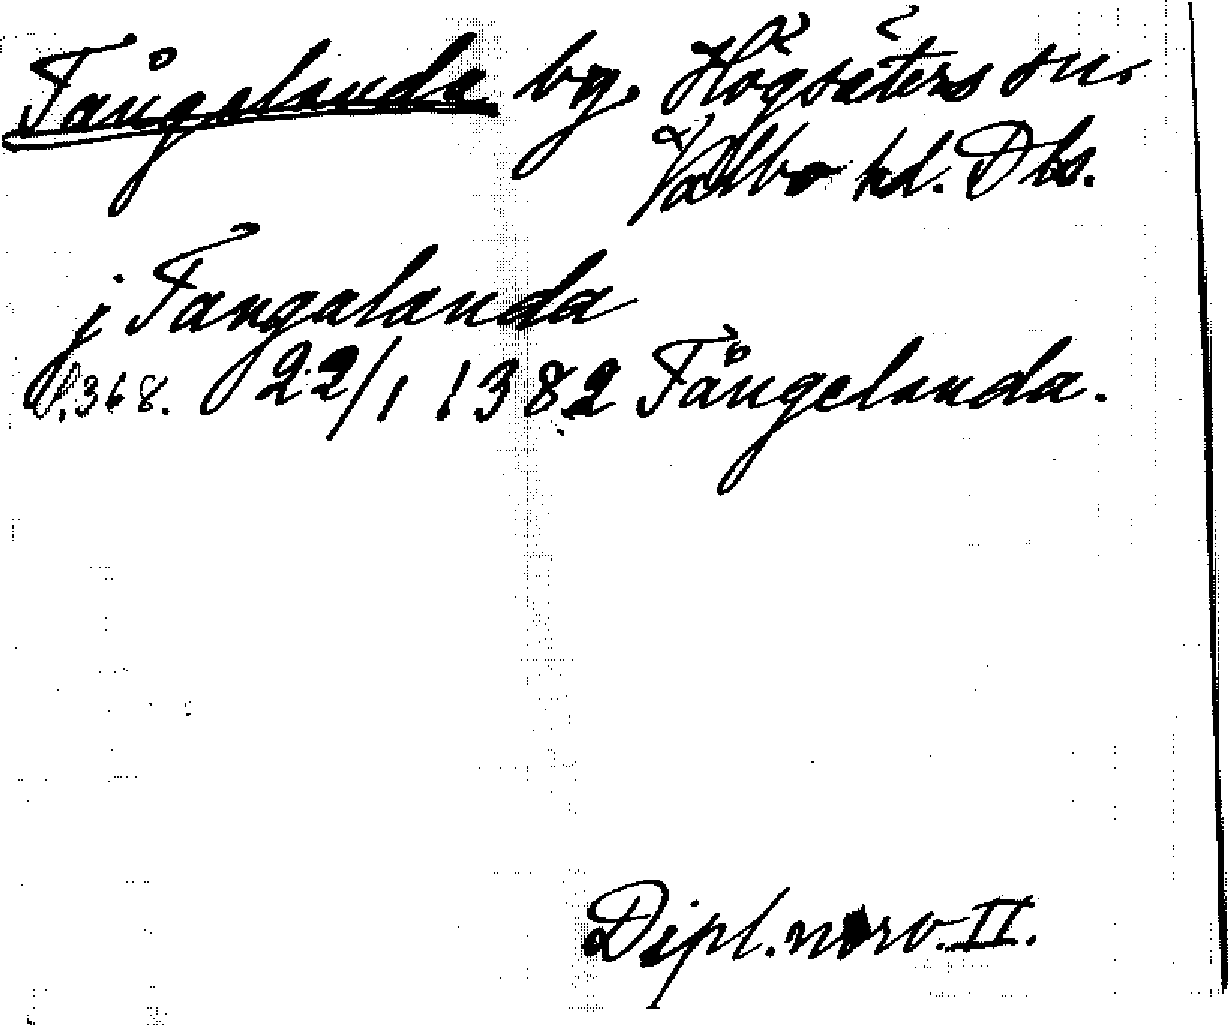 Tångelanda by. Högsäters sn.
Valbo hd. Dls.
j Tangalanda
s.368. 22/1 1382 Tångelanda.
Dipl. norv. II.